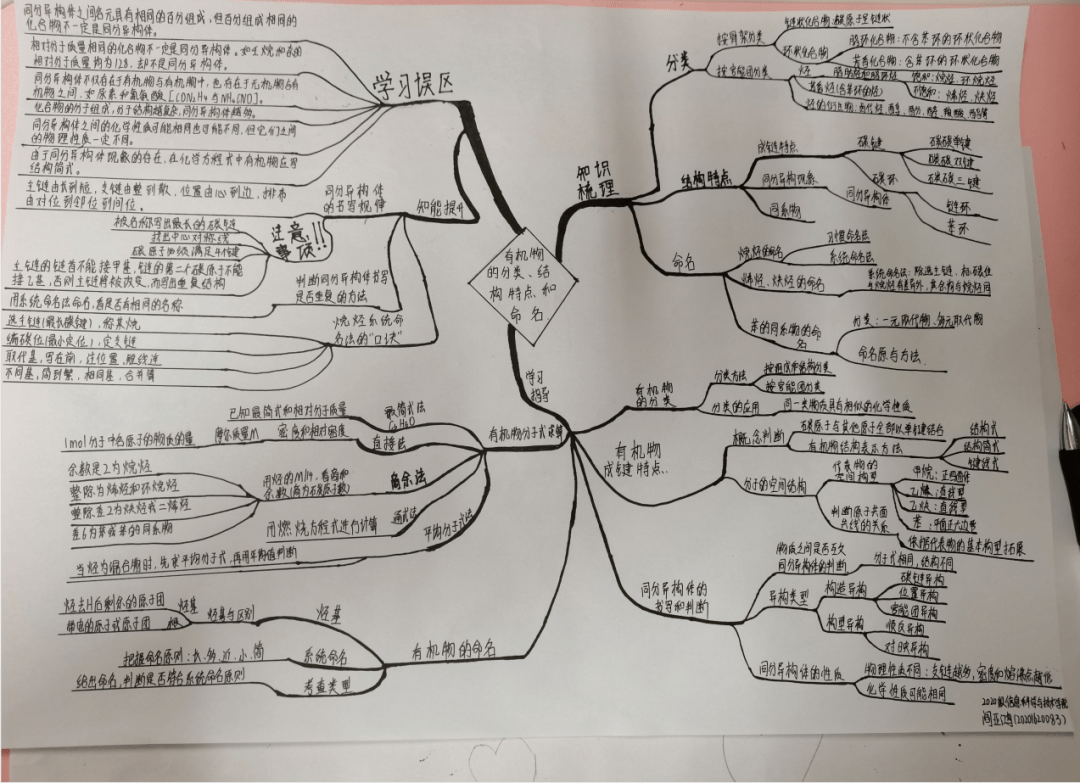 同分异构体之间各元具有相同的百分组成,但百分组成相同的
化合物不一定是同分异构体。
相对分子质量相同的化合物不一定是同分异构体。
相对分子质量均为128,却不是同分异构体。
同分异构体不仅存在于有机物与有机物中,也存在于无机物与有
机物之间,如尿素和氰氨酸
化合物的分子组成,分子结构越复杂,同分异构体越多。
同分异构体之间的化学性质可能相同也可能不同,但它们之间
的物理性质一定不同。
由于同分异构体现象的存在,在化学方程式中有机物应写
结构简式。
学习误区
主链由长到短,支链由整到散,位置由心到边,排布
由对位到邻位到间位。
按名称写出最长的碳链
找出中心对称线
碳原子必须满足4个键
主链的链首不能接甲基,链的第二个碳原子不能
接乙基,否则主链将被改变,而写出重复结构
注意
事项!!
同分异构体
的书写规律
知能提升
用系统命名法命名,看是否有相同的名称
判断同分异构体书写
是否重复的方法
选主链(最长碳链),称某烷
编碳位(最小定位),定支链
取代基,写在前,注位置,短线连
不同基,简到繁,相同基,合并算
烷烃系统命
名法的“口诀”
有机物
的分类、结
构特点和
命名
知识
梳理
分类
按骨架分类
链状化合物:碳原子呈链状
环状化合物
脂环化合物:不含苯环的环状化合物
芳香化合物:含苯环的环状化合物
按官能团分类
烃
饱和:烷烃、环烷烃
不饱和:烯烃、炔烃
芳香烃(含苯环的烃)
结构特点
成键特点
碳键
碳碳单键
碳碳双键
碳碳三键
碳环
链环
苯环
同分异构现象
同分异构体
同系物
命名
烷烃的命名
习惯命名法
系统命名法
烯烃、炔烃的命名
系统命名法:除选主链、标碳位
与烷烃有差异外,其余均与烷烃同
苯的同系物的命
名
分类:一元取代物、多元取代物
命名原与方法
学习
指导
有机物分子式求解
最简式法
已知最简式和相对分子质量
直接法
密度和相对密度
摩尔质量M
1mol分子中各原子的物质的量
商余法
用烃的M/14,看商和
余数(商为石碳原子数)
余数是2为烷烃
整除为烯烃和环烷烃
整除差2为炔烃或二烯烃
差6为苯或苯的同系物
通式法
用燃烧方程式进行计算
平均分子式法
当烃为混合物时,先求平均分子式,再用平均值判断
有机物的命名
烃基
烃基与区别
烃基
烃去H后剩余的原子团
根
带电的原子或原子团
系统命名
把握命名原则:长、多、近、小、简
考查类型
给出命名,判断是否符合系统命名原则
有机物
的分类
分类方法
按组成和结构分类
按官能团分类
分类的应用
同一类物质具有相似的化学性质
有机物
成键特点
概念判断
碳原子与其他原子全部以单键结合
有机物结构表示方法
结构式
结构简式
键线式
分子的空间结构
代表物的
空间构型
甲烷:正四面体
乙烯:直线型
乙炔:直线型
苯:平面正六边形
判断原子共面
共线的关系
依据代表物的基本构型拓展
同分异构体的
书写和判断
物质之间是否互为
同分异构体的判断
分子式相同,结构不同
异构类型
构造异构
碳链异构
位置异构
官能团异构
构型异构
顺反异构
对映异构
同分异构体的性质
物理性质不同:支链越多,密度和熔沸点越低
化学性质可能相同
2020级信息科学与技术学院
(20201620083)